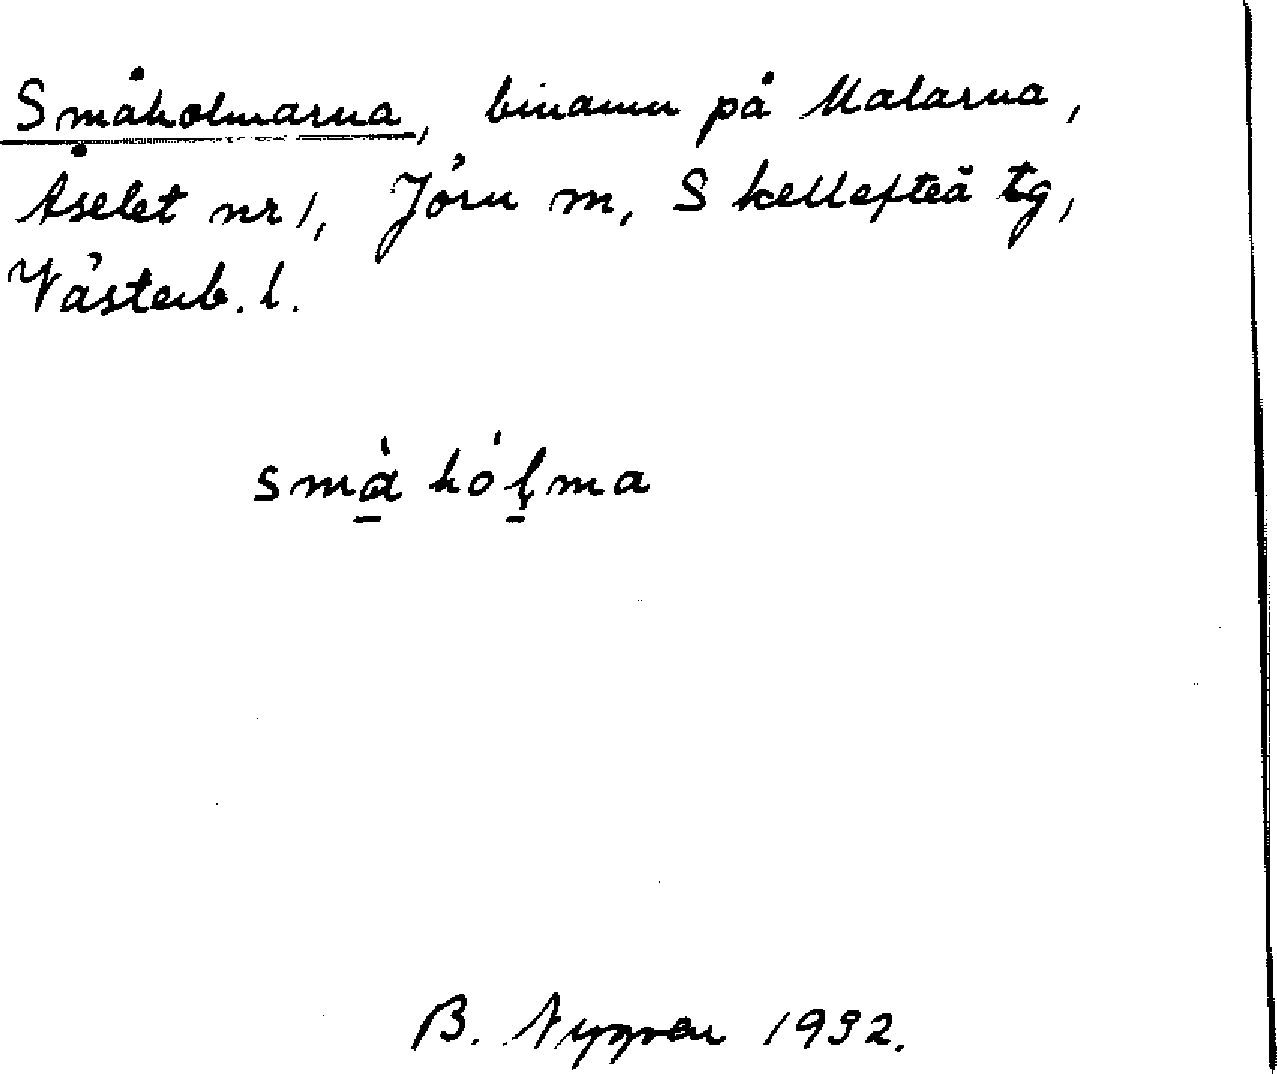 Småholmarna, binamn på Malarna,
Åselet nr 1, Jörn m, Skellefteå tg,
Västerb. l.
smà̱ hóḷ̱ma
B. Nygren 1932.